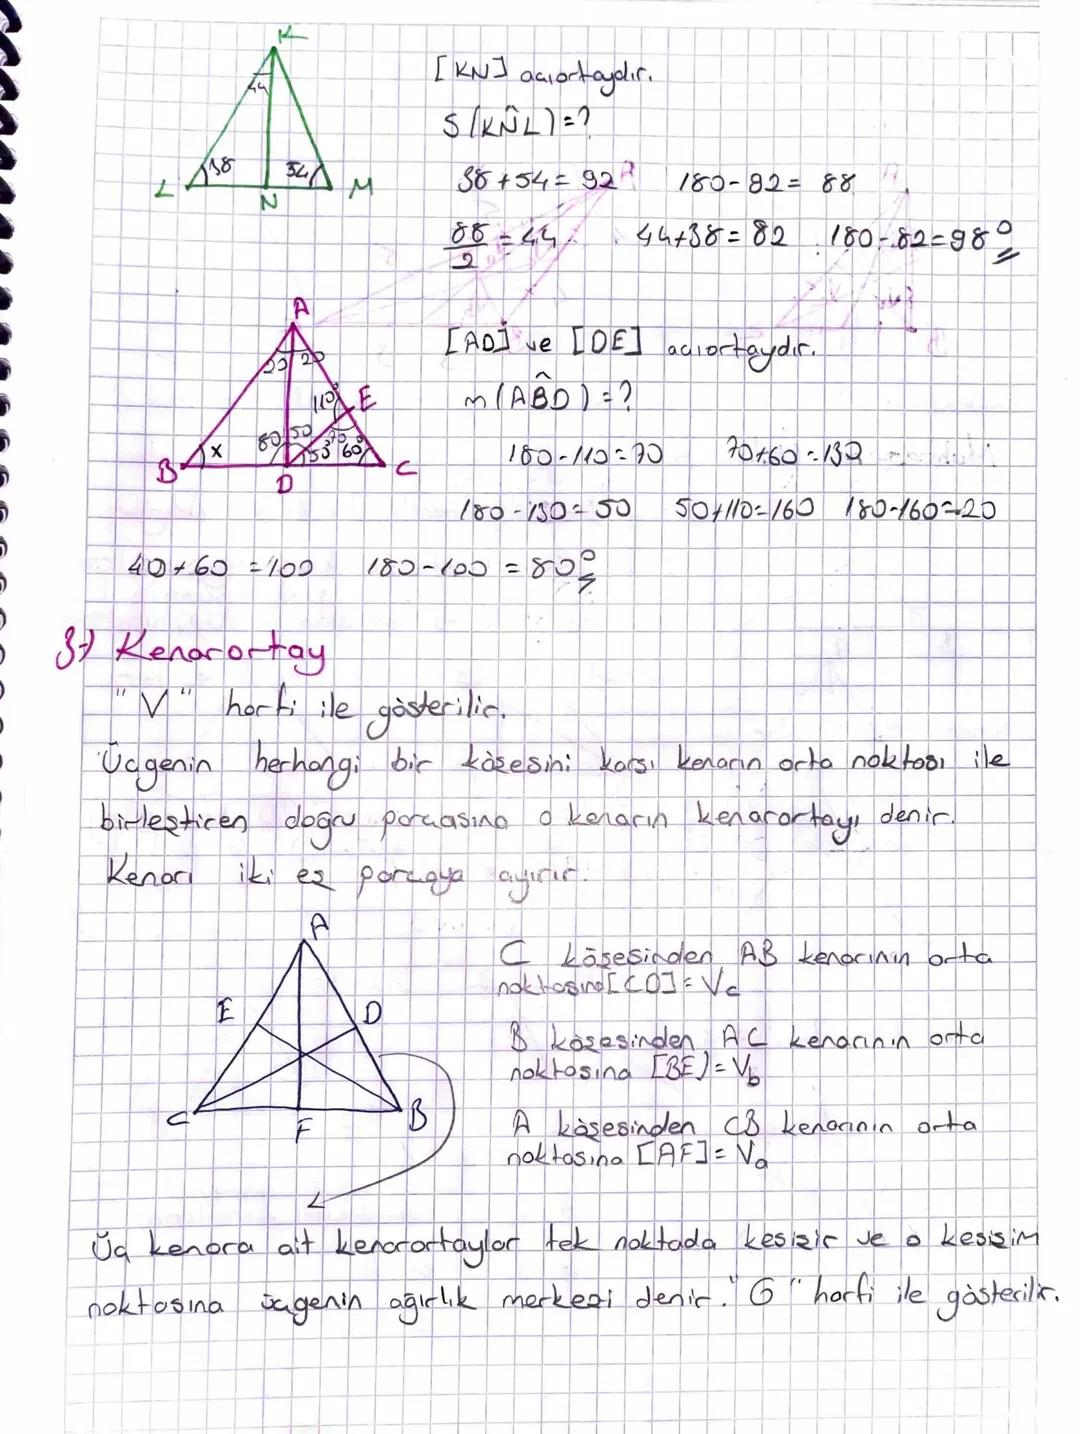 K
44
38
54
L
N
M
[KN] açıortaydır.
S(KN̂L)=?
38+54=92 180-92=88
88/2=44 44+38=82 180-82=98°
A
20 20
110°
E
x
80 50
53 70 60
B
D
C
[AD] ve [DE] açıortaydır.
m(AB̂D)=?
180-110=70 70+60=130
180-130=50 50+110=160 180-160=20
40+60=100 180-100=80°
3-) Kenarortay
"V" harfi ile gösterilir.
Üçgenin herhangi bir köşesini karşı kenarın orta noktası ile
birleştiren doğru parçasına o kenarın kenarortayı denir.
Kenarı iki eş parçaya ayırır.
A
E
D
C
F
B
C köşesinden AB kenarının orta
noktasına [CD]=Vc
B köşesinden AC kenarının orta
noktasına [BE]=Vb
A köşesinden CB kenarının orta
noktasına [AF]=Va
Üç kenara ait kenarortaylar tek noktada kesişir ve o kesişim
noktasına üçgenin ağırlık merkezi denir. "G" harfi ile gösterilir.